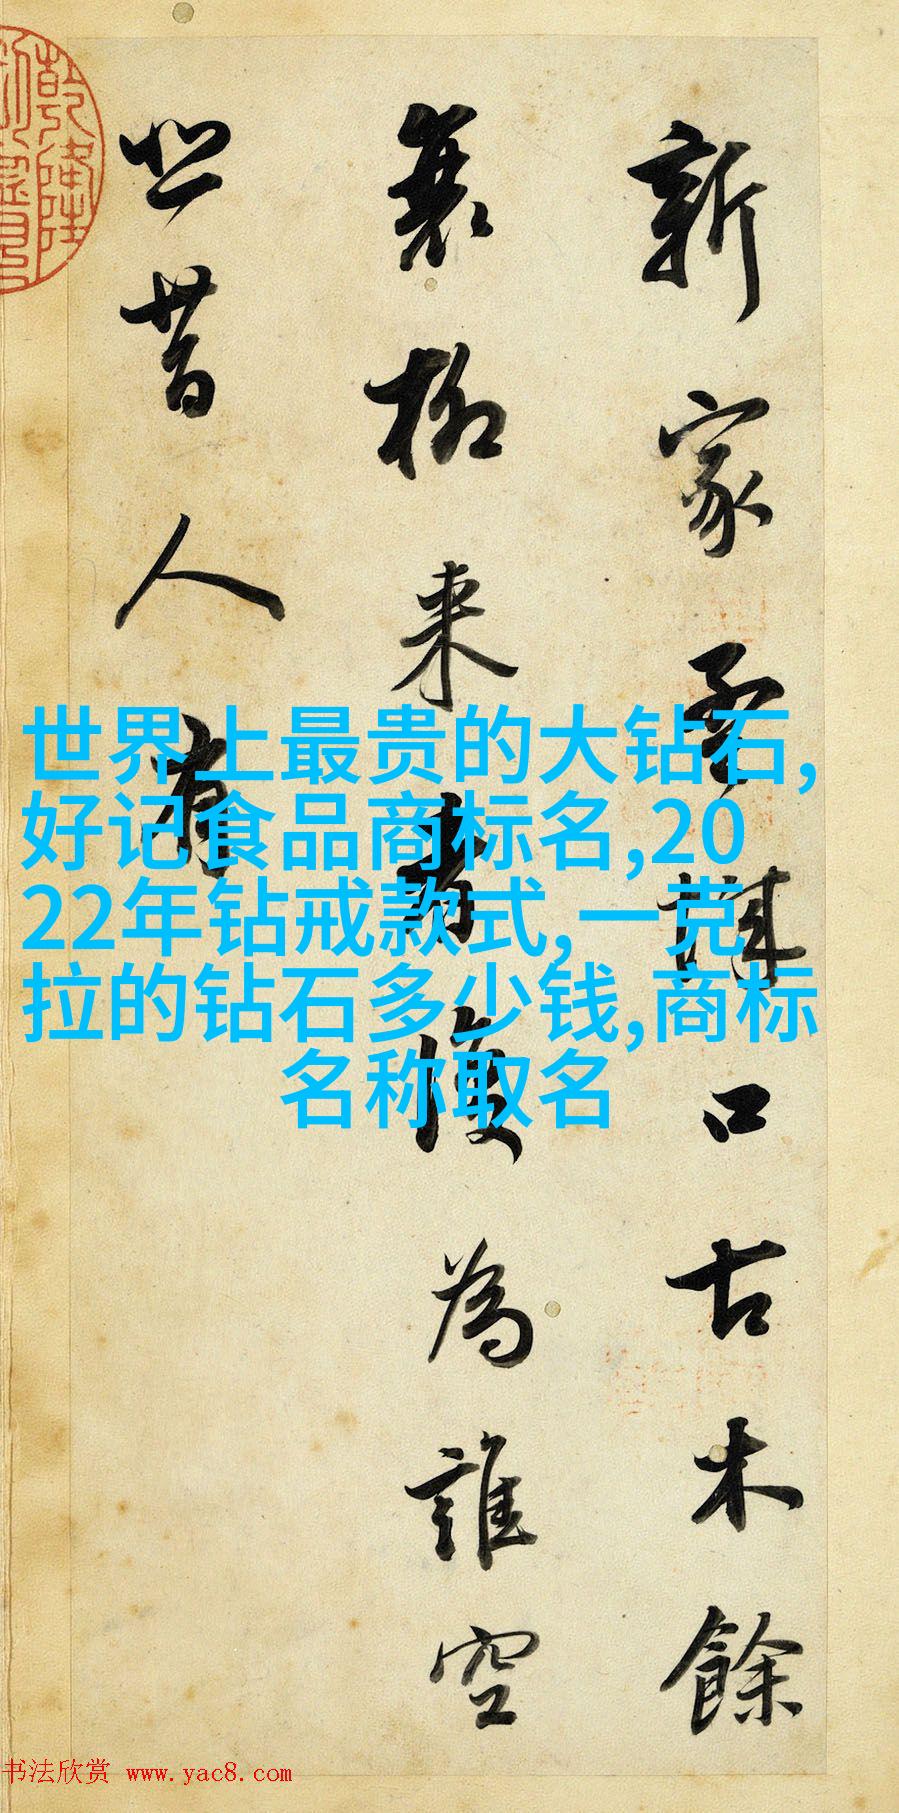 新家孟城口古木餘
衰柳来者復為誰空
悲昔人有
乾隆
世界上最贵的大钻石,
好记食品商标名,20
22年钻戒款式,一克
拉的钻石多少钱,商标
名称取名
书法欣赏 www.yac8.com